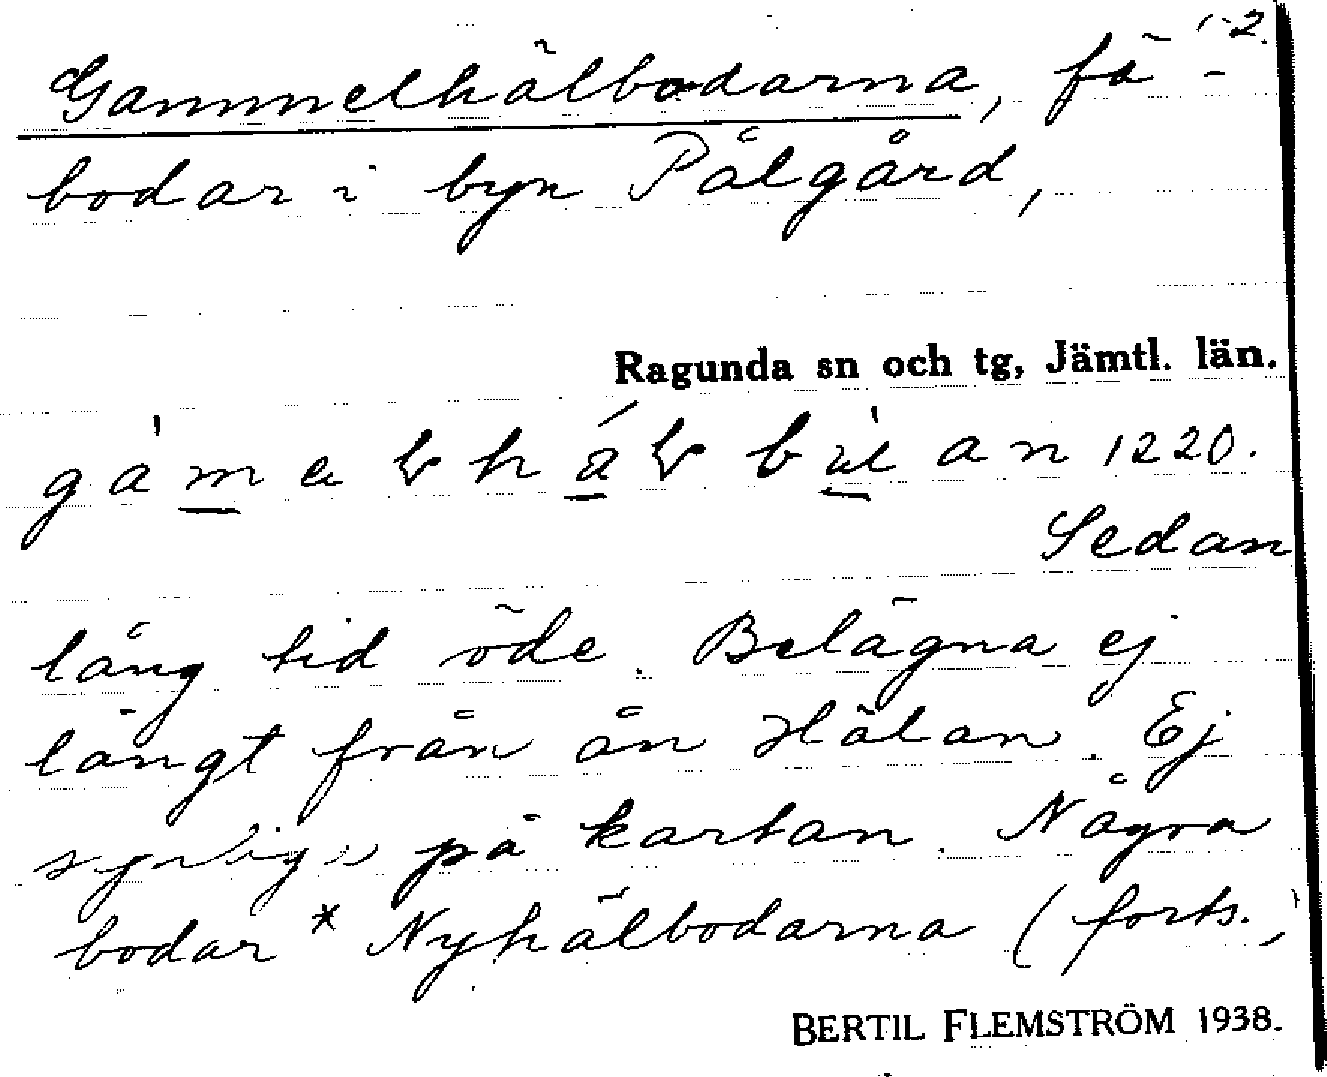 1-2.
Gammelhälbodarna, fä-
bodar i byn Pålgård,
Ragunda sn och tg, Jämtl. län.
1220.
Sedan
lång tid öde. Belägna ej
långt från ån Hälan. Ej
synliga på kartan. Några
bodar * Nyhälbodarna (forts.)
BERTIL FLEMSTRÖM 1938.